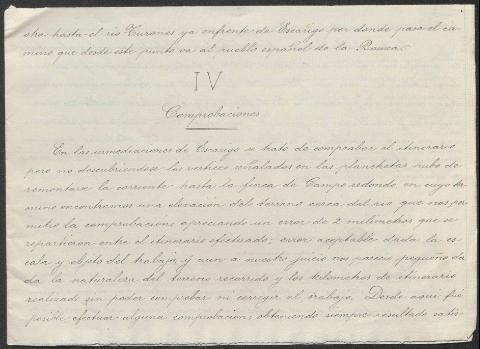 otro hasta el rio Turones ya enfrente de Escarigo por donde pasa el ca-
mino que desde este punto va al pueblo español de la Bouza.
IV
Comprobaciones
En las inmediaciones de Escarigo se trató de comprobar el itinerario
pero no descubriendose los vertices señalados en las planchetas hubo de
remontarse la corriente hasta la finca de Campo redondo, en cuyo ca-
mino encontramos una elevacion del terreno cerca del rio que nos per-
mitio la comprobacion, apreciando un error de 2 milimetros que se
repartieron entre el itinerario efectuado; error aceptable dada la es-
cala y objeto del trabajo y aun a nuestro juicio nos parece pequeño da-
da la naturaleza del terreno recorrido y los kilometros de itinerario
realizado sin poder comprobar ni corregir el trabajo. Desde aqui fué
posible efectuar alguna comprobacion, obteniendo siempre resultado satis-